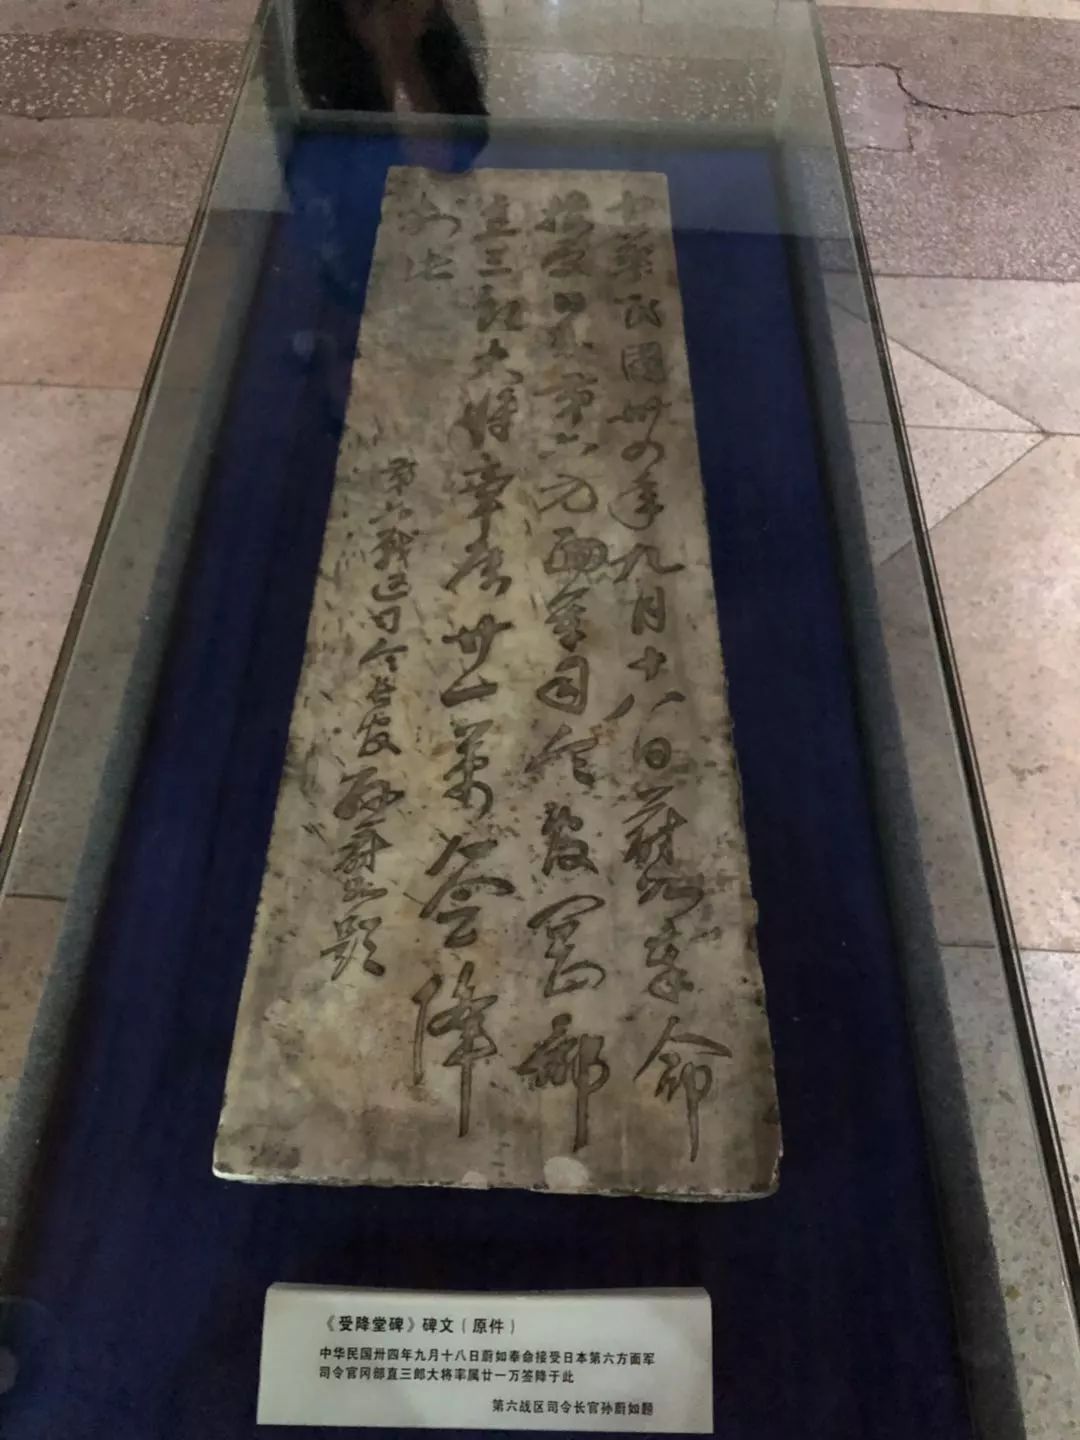 中華民國卅四年九月十八日蔚如奉命
接受日本第六方面軍司令官岡部
直三郎大将率属廿一萬签降
於此
第六战区司令长官孫蔚如题
《受降堂碑》碑文（原件）
中华民国卅四年九月十八日蔚如奉命接受日本第六方面军
司令官冈部直三郎大将率属廿一万签降于此
第六战区司令长官孙蔚如题